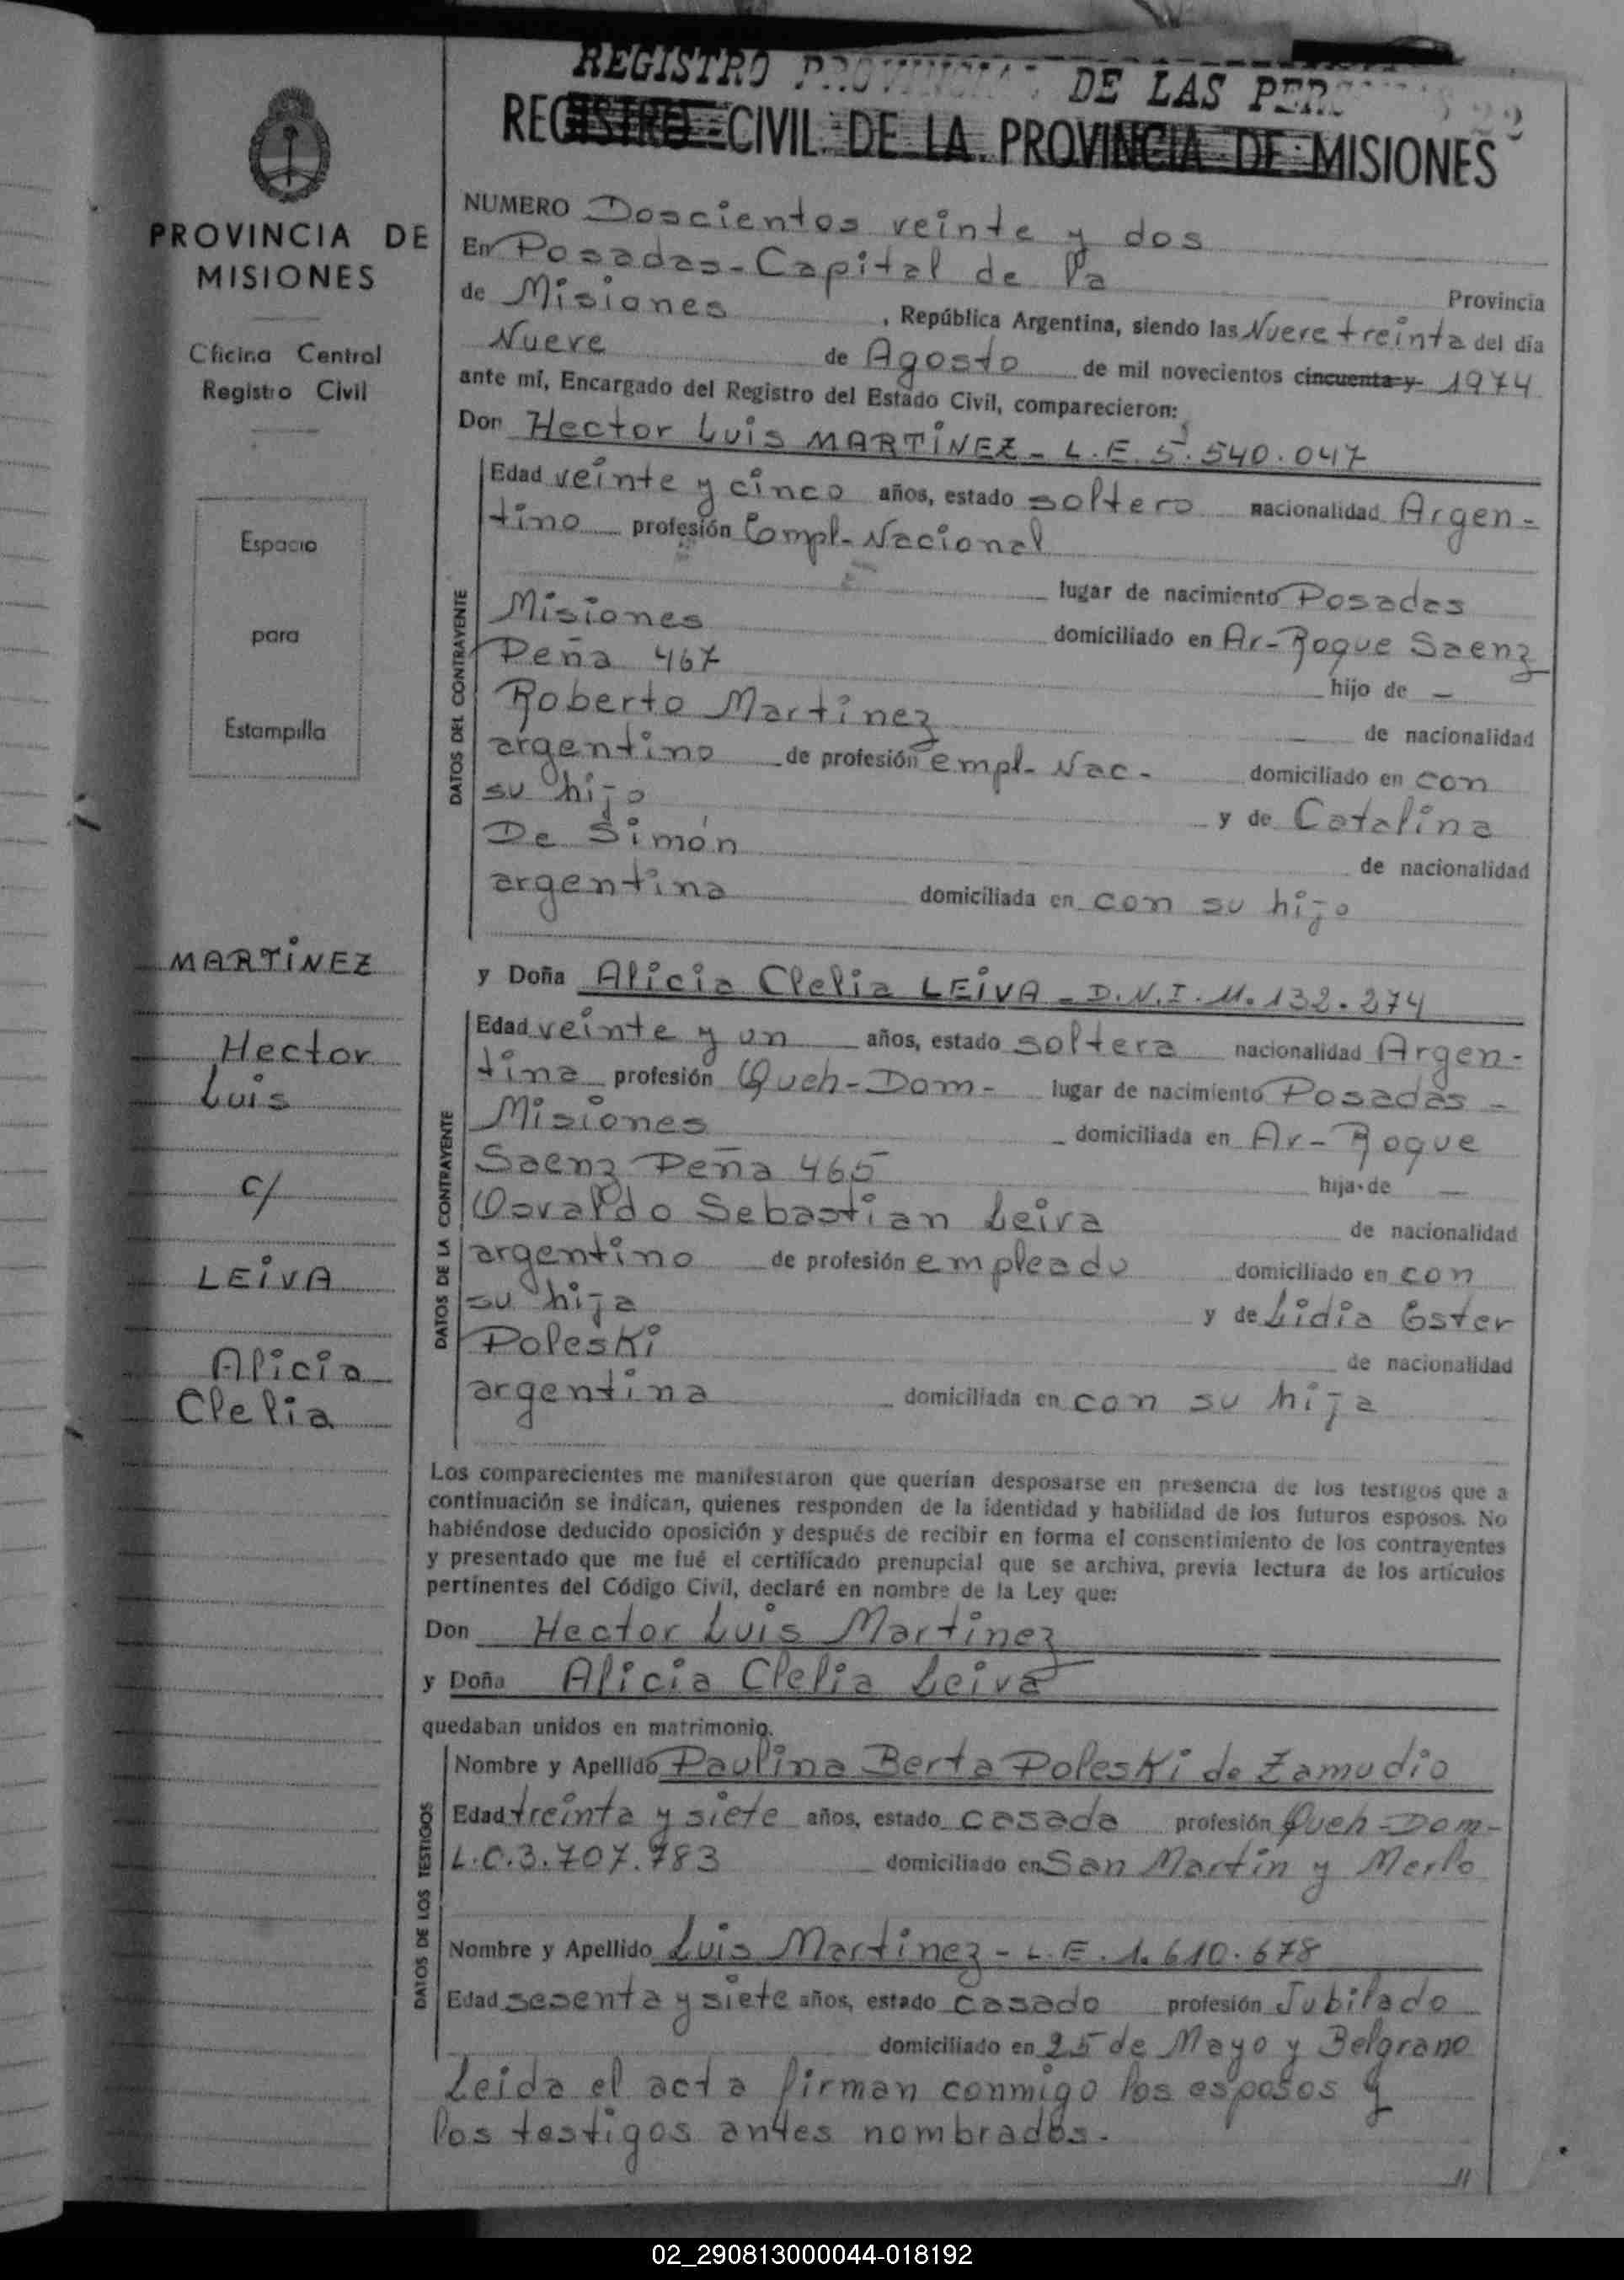 REGISTRO PROVINCIAL DE LAS PERSONAS
REGISTRO CIVIL DE LA PROVINCIA DE MISIONES
PROVINCIA DE
MISIONES
Oficina Central
Registro Civil
Espacio
para
Estampilla
MARTÍNEZ
Hector
Luis
c/
LEIVA
Alicia
Clelia
NUMERO Doscientos veinte y dos
En Posadas - Capital de la Provincia
de Misiones, República Argentina, siendo las Nueve treinta del día
Nueve de Agosto de mil novecientos cincuenta y 1974
ante mí, Encargado del Registro del Estado Civil, comparecieron:
Don Hector Luis MARTÍNEZ - L.E. 5.540.047
DATOS DEL CONTRAYENTE
Edad veinte y cinco años, estado soltero nacionalidad Argen-
tino profesión Compl- Nacional
lugar de nacimiento Posadas
Misiones domiciliado en Av- Roque Saenz
Peña 467 hijo de -
Roberto Martinez de nacionalidad
argentino de profesión empl- Nac- domiciliado en con
su hijo y de Catalina
De Simón de nacionalidad
argentina domiciliada en con su hijo
y Doña Alicia Clelia LEIVA - D.N.I. 11.132.274
DATOS DE LA CONTRAYENTE
Edad veinte y un años, estado soltera nacionalidad Argen-
tina profesión Queh-Dom- lugar de nacimiento Posadas -
Misiones domiciliada en Av- Roque
Saenz Peña 465 hija de -
Osvaldo Sebastian Leiva de nacionalidad
argentino de profesión empleado domiciliado en con
su hija y de Lidia Ester
Poleski de nacionalidad
argentina domiciliada en con su hija
Los comparecientes me manifestaron que querían desposarse en presencia de los testigos que a
continuación se indican, quienes responden de la identidad y habilidad de los futuros esposos. No
habiéndose deducido oposición y después de recibir en forma el consentimiento de los contrayentes
y presentado que me fué el certificado prenupcial que se archiva, previa lectura de los artículos
pertinentes del Código Civil, declaré en nombre de la Ley que:
Don Hector Luis Martinez
y Doña Alicia Clelia Leiva
quedaban unidos en matrimonio.
DATOS DE LOS TESTIGOS
Nombre y Apellido Paulina Berta Poleski de Zamudio
Edad treinta y siete años, estado casada profesión Queh-Dom-
L.C. 3.707.783 domiciliado en San Martín y Merlo
Nombre y Apellido Luis Martinez - L.E. 1.610.678
Edad sesenta y siete años, estado casado profesión Jubilado
domiciliado en 25 de Mayo y Belgrano
Leida el acta firman conmigo los esposos y
los testigos antes nombrados.
//
02_290813000044-018192